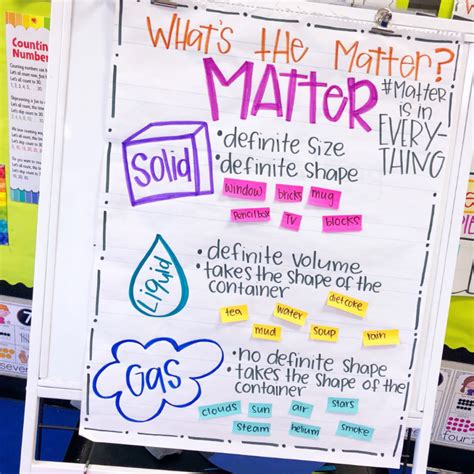 What's the Matter?
MATTER
#Matter
is in
EVERY-
THING
Solid
• definite Size
• definite Shape
window bricks mug
Pencil box TV blocks
Liquid
• definite volume
• takes the shape of the
container
tea water diet coke
mud soup rain
Gas
• no definite shape
• takes the shape of the
container
clouds sun air stars
steam helium smoke
Counting
Number
Counting numbers
Let's all count
four